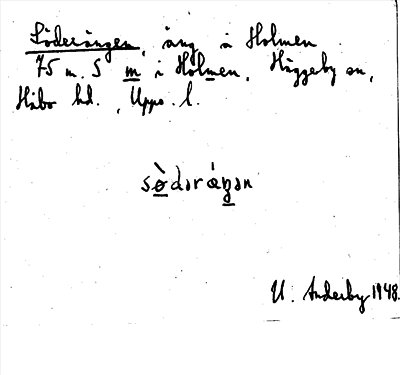 Söderängen, äng å Holmen
75 m. S m i Holmen, Häggeby sn,
Håbo hd., Upps. l.
sø̀dərǽŋən
U. Anderby 1948.